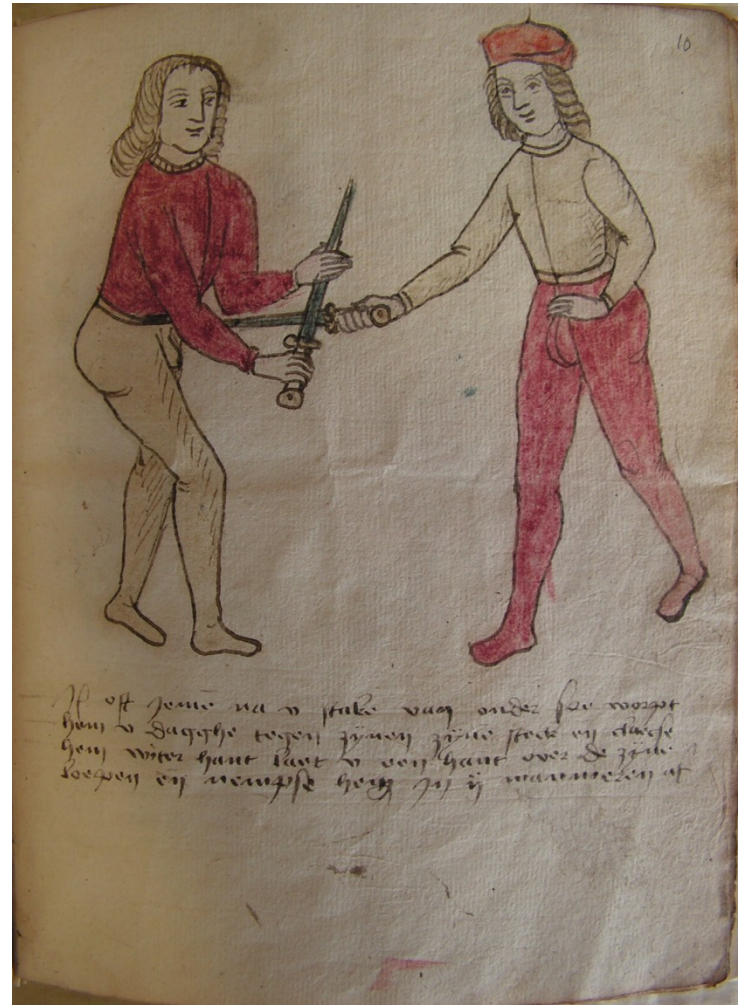 10
Jt oft yeme na v stake van onder soe worpt
hem v dagghe tegen zynen zyne steck en slaetse
hem wter hant laet v een hant over de zyne
loepen en nempse hem in ij manneren af